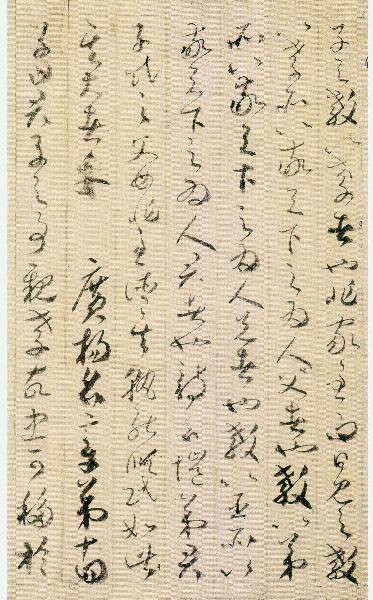 子之教以孝者也非家至而日見之教
以孝所以敬天下之為人父者也教以弟
所以敬天下之為人兄者也教以臣所以
敬天下之為人君者也詩云愷弟君
子民之父母非至德其孰能順民如此
其大者乎 廣揚名章第十四
子曰君子之事親孝故忠可移於